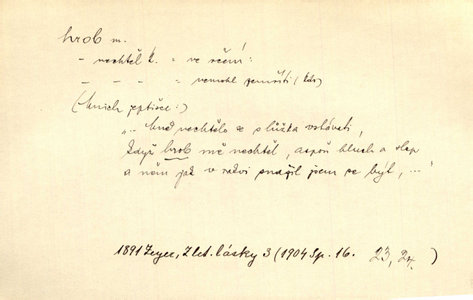 hrob m.
- nechtěl k. = ve rčení:
- - - = nemohl zemříti (kdo)
(mnich
" hned nechtělo z lůžka vstávati,
když hrob mě nechtěl, aspoň hluch a slep
a něm jak v rakvi snažil jsem se být, ... "
1891 Zeyer, Z let. lásky 3 (1904 Sp. 16. 23, 24. )